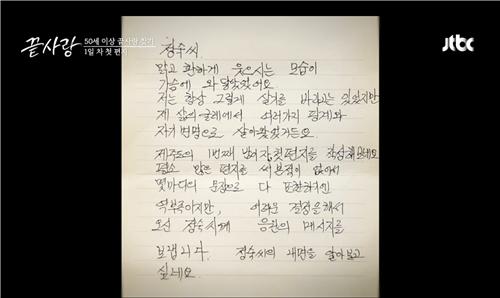 끝사랑
50세 이상 끝사랑 찾기
1일 차 첫 편지
jtbc
정숙씨
맑고 환하게 웃으시는 모습이
가슴에 와 닿았었어요
저는 항상 그렇게 살기를 바라고는 있었지만
제 삶의 굴레에서 여러가지 핑계와
자기변명으로 살아왔었거든요.
제주도의 1번째 밤 첫편지를 작성해보네요
평소 많은 편지를 써본적이 없어서
몇마디의 문장으로 다 표현하기엔
역부족이지만, 어려운 결정을 해서
오신 정숙씨께 응원의 메시지를
보냅니다. 정숙씨의 내면을 알아보고
싶네요.